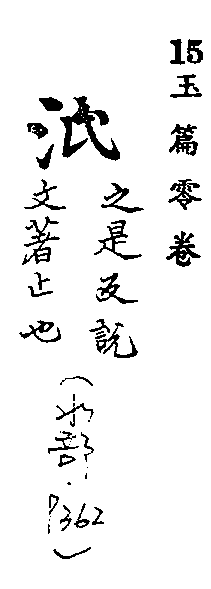 15玉篇零卷
汦
之是反說
文著止也
(水部·P362)